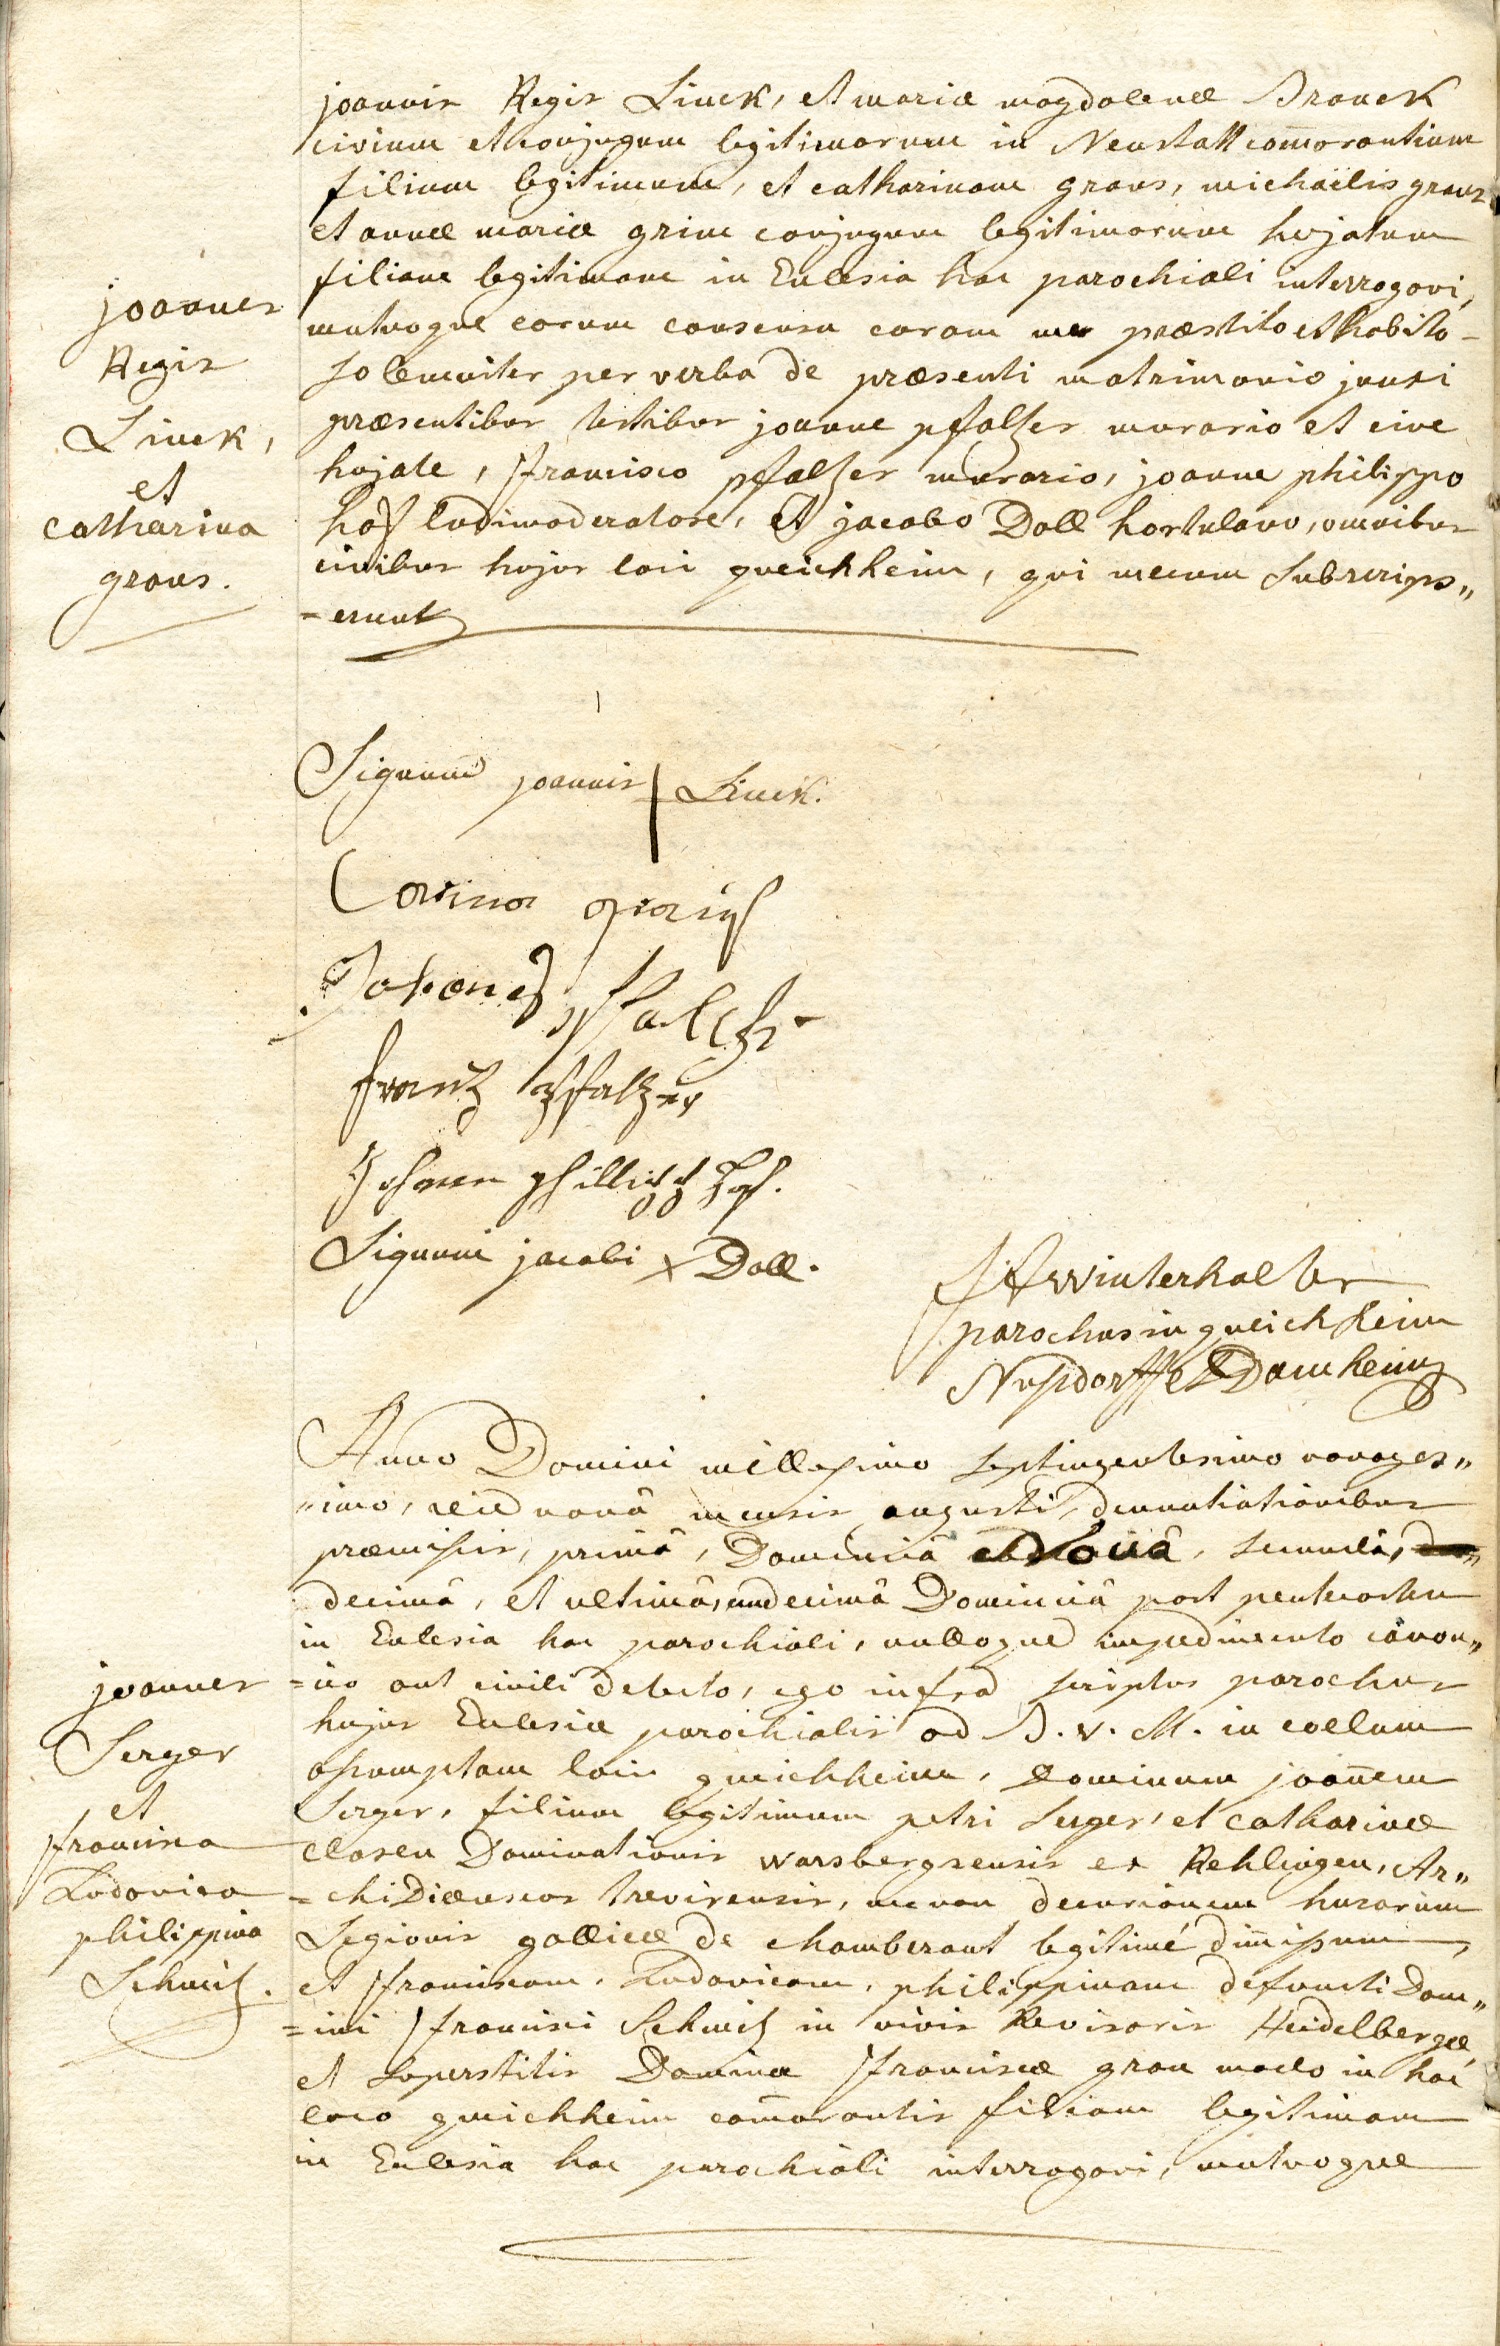 joannis Regis Linck, et mariæ magdalenæ Branck
civium et conjugum legitimorum in Neustatt com̄orantium
filium legitimum, et catharinam graus, michaëlis graus
et annæ mariæ grim conjugum legitimorum hujatum
filiam legitimam in Ecclesia hac parochiali interrogavi,
mutuoque eorum consensu coram me præstito et habito
solemniter per verba de præsenti matrimonio junxi
præsentibus testibus joanne pfaltzer murario et cive
hujate, francisco pfaltzer murario, joanne philippo
hoſ ludimoderatore, et jacobo Doll hortulano, omnibus
civibus hujus loci queichheim, qui mecum subscrips„
=erunt
joannes
Regis
Linck,
et
catharina
graus.
Signum joannis Linck.
Johanes
frantz pfaltzer
Johann phillipp
Signum jacobi x Doll.
Winterhalter
parochus in queichheim
Nusdorff et Damheim
Anno Domini millesimo septingentesimo nonages„
„imo, die nonâ mensis augusti, denuntiationibus
præmissis, primâ, Dominicâ Nonâ, secundâ,
decimâ, et ultimâ, undecimâ Dominicâ post pentecosten
in Ecclesia hac parochiali, nulloque impedimento canon„
=ico aut civili detecto, ego infra scriptus parochus
hujus Ecclesiæ parochialis ad B. V. M. in cœlum
assumptam loci queichheim, Dominum joan̄em
Serger, filium legitimum petri Serger, et catharinæ
closen Dominationis warsbergsensis ex Rehlingen, Ar„
=chiDiœceseos trevirensis, necnon decurionem husarum
Legionis gallicæ de chamberant legitimé dim̄issum,
et franciscam, Ludovicam, philippinam defuncti Dom„
=ini francisci Schmitz in vivis Revisoris Heidelbergæ,
et superstitis Dominæ franciscæ grau modo in hoc
loco queichheim com̄orantis filiam legitimam
in Ecclesia hac parochiali interrogavi, mutuoque
joannes
Serger
et
francisca
Ludovica
philippina
Schmitz.